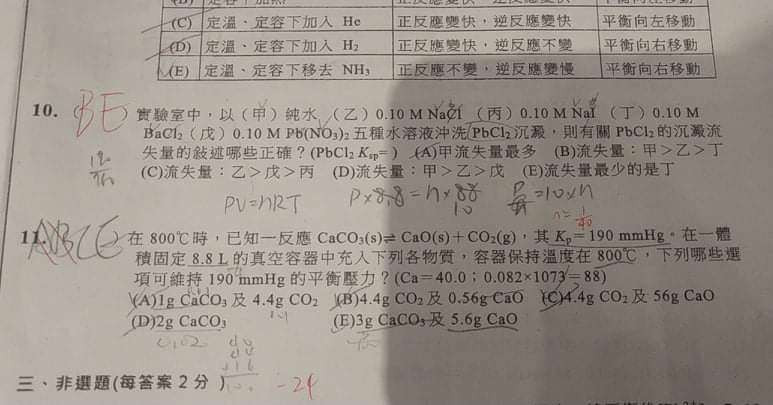 (C) 定溫、定容下加入 He 正反應變快，逆反應變快 平衡向左移動
(D) 定溫、定容下加入 H₂ 正反應變快，逆反應不變 平衡向右移動
(E) 定溫、定容下移去 NH₃ 正反應不變，逆反應變慢 平衡向右移動
10. BE 實驗室中，以（甲）純水 （乙）0.10 M NaCl （丙）0.10 M NaI （丁）0.10 M
BaCl₂（戊）0.10 M Pb(NO₃)₂ 五種水溶液沖洗 PbCl₂ 沉澱，則有關 PbCl₂ 的沉澱流
失量的敘述哪些正確？(PbCl₂ Ksp= ) (A)甲流失量最多 (B)流失量：甲＞乙＞丁
(C)流失量：乙＞戊＞丙 (D)流失量：甲＞乙＞戊 (E)流失量最少的是丁
PV=nRT P×8.8=n×88 =10×n
10
11. 在 800℃時，已知一反應 CaCO₃(s)⇌ CaO(s)＋CO₂(g)，其 Kp＝190 mmHg。在一體
積固定 8.8 L 的真空容器中充入下列各物質，容器保持溫度在 800℃，下列哪些選
項可維持 190 mmHg 的平衡壓力？(Ca＝40.0；0.082×1073≐88)
(A)1g CaCO₃ 及 4.4g CO₂ (B)4.4g CO₂ 及 0.56g CaO (C)4.4g CO₂ 及 56g CaO
(D)2g CaCO₃ (E)3g CaCO₃ 及 5.6g CaO
三、非選題(每答案 2 分 ) -24